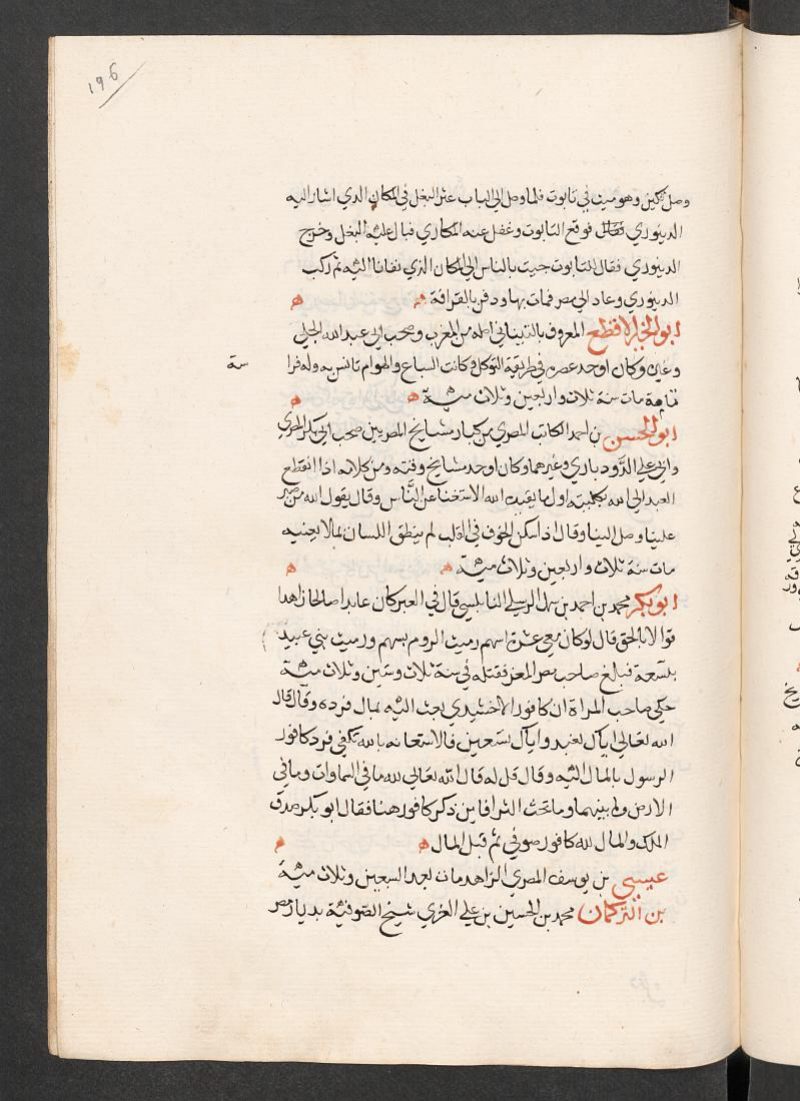 196
وصل تكين وهو ميت في تابوت فلما وصل الي الباب عثر البغل في المكان الذي اشار اليه
الدينوري فوقع التابوت وغفل عنه المكاري فبال عليه البغل وخرج
الدينوري فقال التابوت جيت بالناس الي المكان الذي نفانا اليه ثم ركب
الدينوري وعاد الي مصر فمات بها ودفن بالقرافة ه ه
ابو الخير الاقطع المعروف بالتيناتي اصله من المغرب وصحب ابي عبد الله الجلي
وغيره وكان اوحد عصره في طريقة التوكل وكانت السباع والهوام تانس به وله فرا سة
مات سنة ثلاث واربعين وثلاث مئية ه ه
ابو الحسن بن احمد الكاتب المصري من كبار مشايخ المصريين صحب ابي بكر المصري
وابي علي الرودباري وغيرهما وكان اوحد مشايخ وقته ومن كلامه اذا انقطع
العبد الي الله بكليته اول ما يفيده الله الاستغنا عن الناس وقال يقول الله من صبر
علينا وصل الينا وقال اذا سكن الخوف في القلب لم ينطق اللسان بمالا يعنيه
مات سنة ثلاث واربعين وثلاث مئية ه ه
ابو بكر محمد بن احمد بن سهل الرملي النابلسي قال في العبر كان عابدا صالحا زاهدا
قوالا بالحق قال لو كان معي عشرة اسهم رميت الروم بسهم ورميت بني عبيد
بتسعة فبلغ صاحب مصر المعز فقتله في سنة ثلاث وستين وثلاث مئية
حكي صاحب المراة ان كافور الاخشيدي بعث اليه بمال فرده وقال قال
الله تعالي اياك نعبد واياك نستعين فالاستعانه بالله تكفي فرد كافور
الرسول بالمال اليه وقال قل له قال الله تعالي لله ما في السماوات وما في
الارض وما بينهما وما تحت الثرا فاين ذكر كافور هنا فقال ابو بكر صدق
الملك والمال لله كافور صوفي ثم قبل المال ه ه
عيسي بن يوسف المصري الزاهد مات بعد السبعين وثلاث مئية
بن التركمان محمد بن الحسين بن علي الغزي شيخ الصوفية بديار مصر